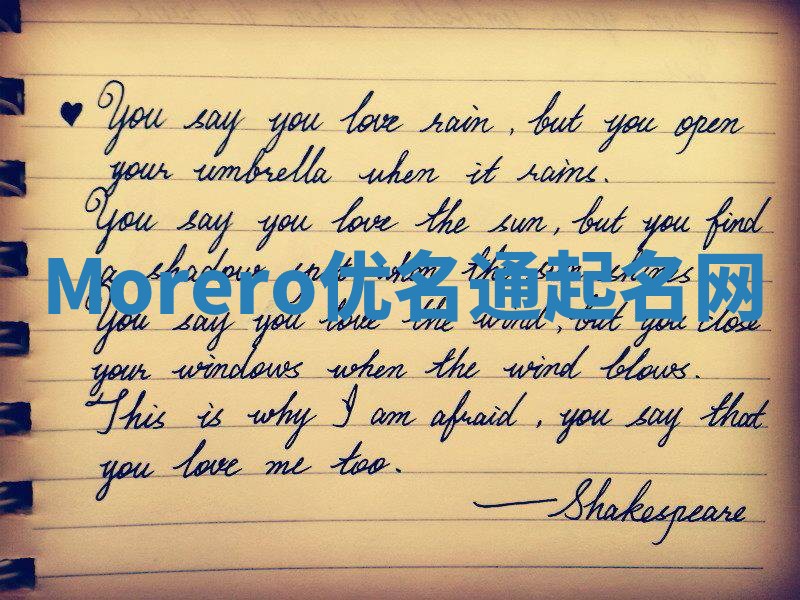 ♥ You say you love rain, but you open
your umbrella when it rains.
You say you love the sun, but you find
a shadow spot when the sun shines
Morero优名通起名网
You say you love the wind, but you close
your windows when the wind blows.
This is why I am afraid, you say that
you love me too.
— Shakespeare